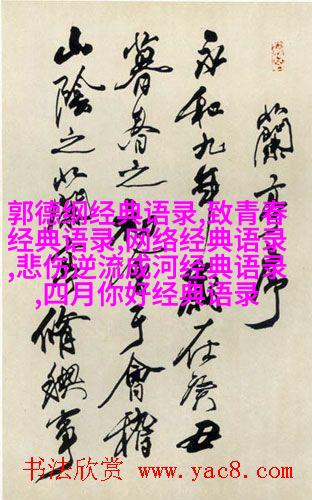 蘭亭序
永和九年歲在癸丑
暮春之初會于會稽
山陰之蘭亭脩禊事
郭德纲经典语录,致青春
经典语录,网络经典语录
,悲伤逆流成河经典语录
,四月你好经典语录
书法欣赏 www.yac8.com